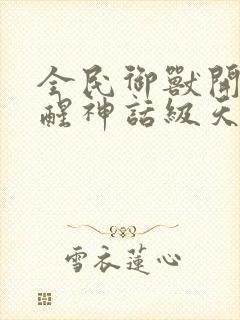 全民御獸開
醒神話級天
雪衣蓮心